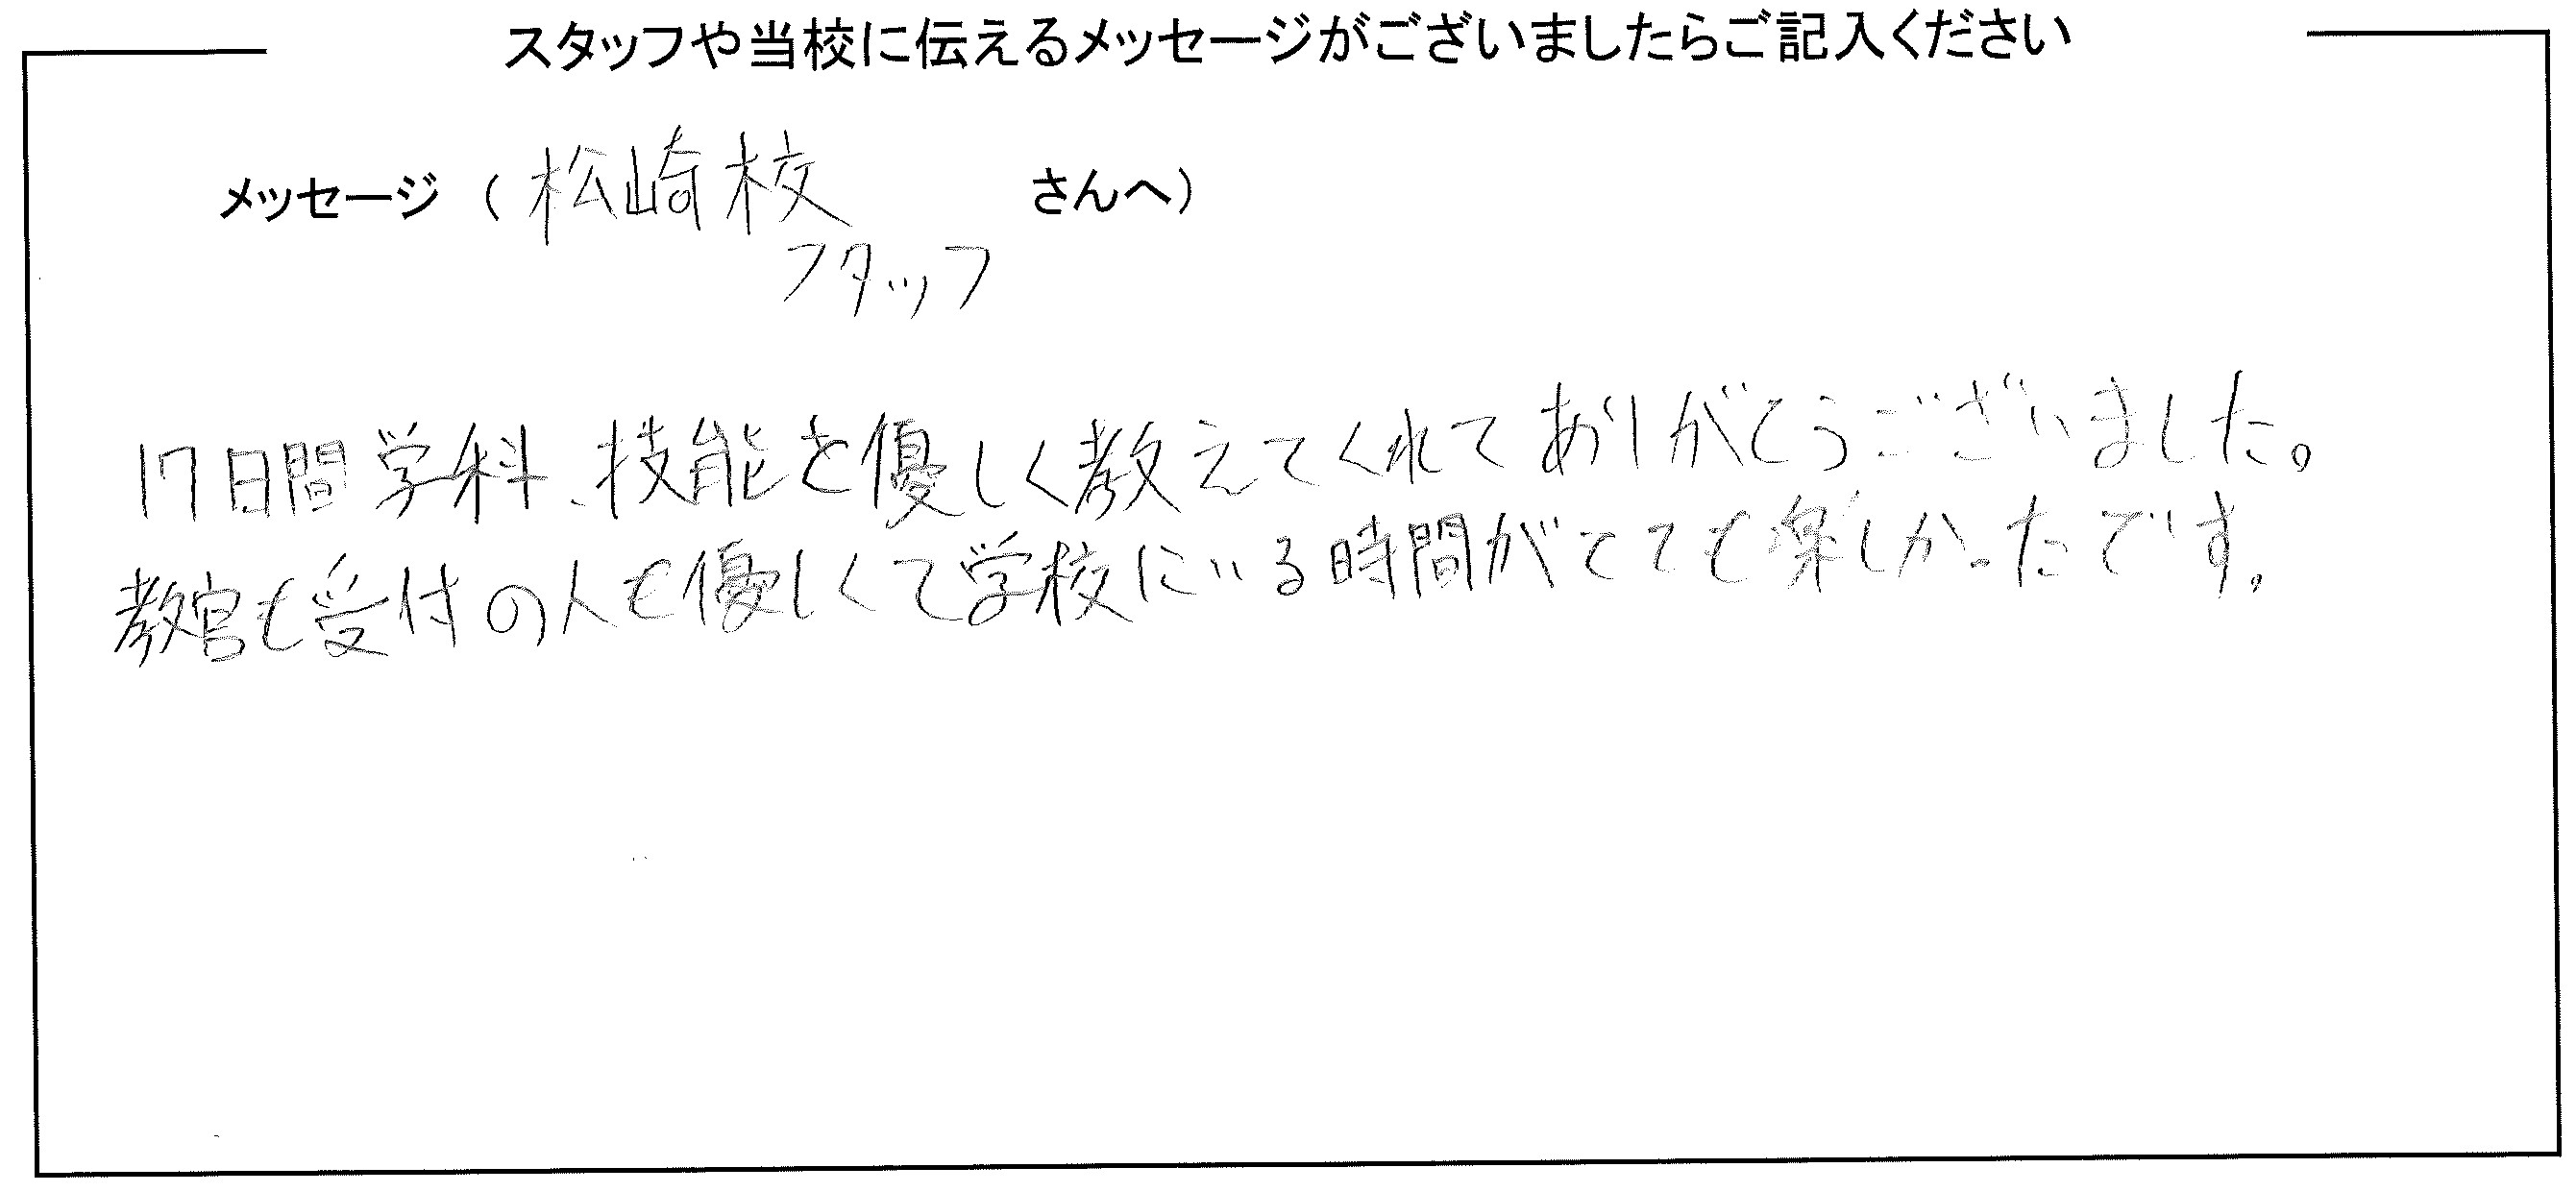 スタッフや当校に伝えるメッセージがございましたらご記入ください
メッセージ（松崎校 さんへ）
スタッフ
17日間学科、技能を優しく教えてくれてありがとうございました。
教官も受付の人も優しくて学校にいる時間がとても楽しかったです。